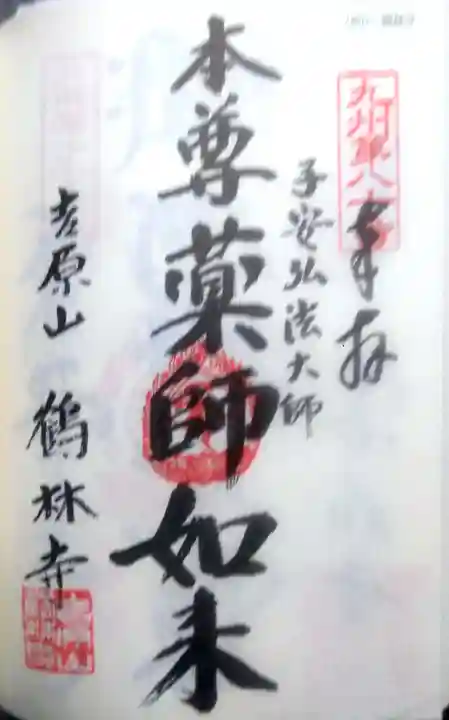 奉拝
子安弘法大師
本尊薬師如来
吉原山 鶴林寺